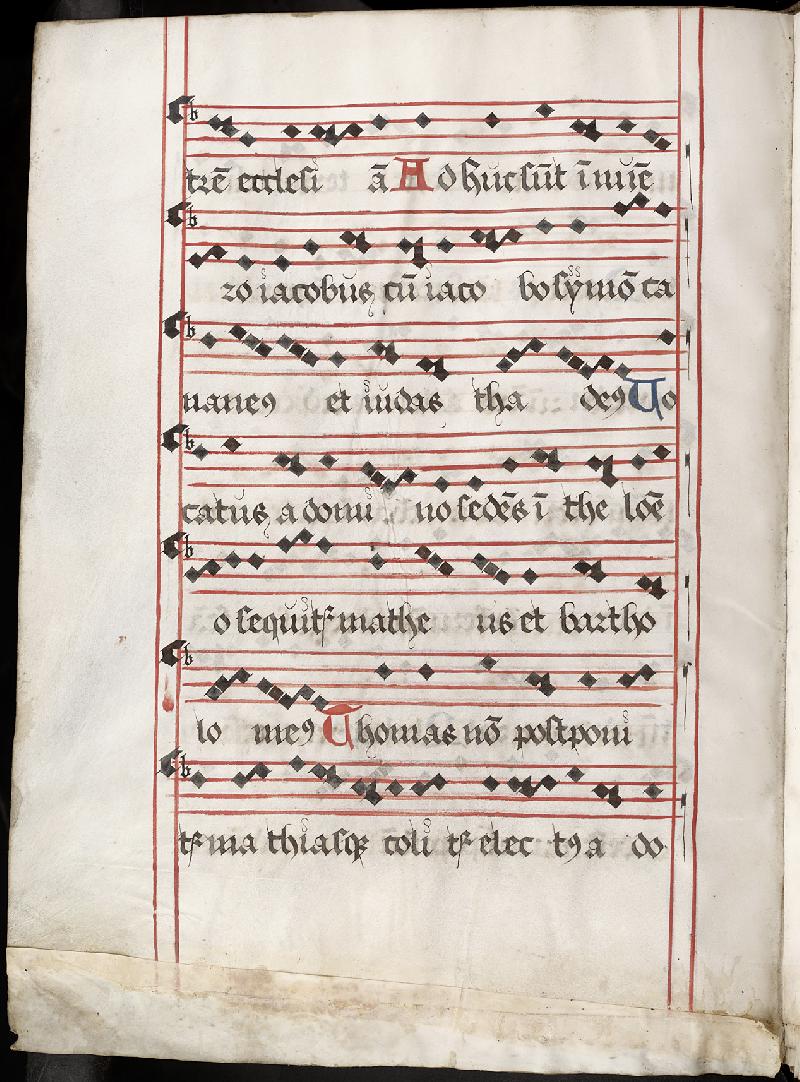 trē ecclesi ā Adhuc sūt ī nūē
ro iacobus cū iaco bo symō ca
naneꝯ et iudas tha deꝯ Uo
catus a domi no sedēs ī the loē
o sequit᷑ mathe us et bartho
lo meꝯ Thomas nō postponi
t᷑ ma thiasqꝫ coli t᷑ elec tꝯ a do